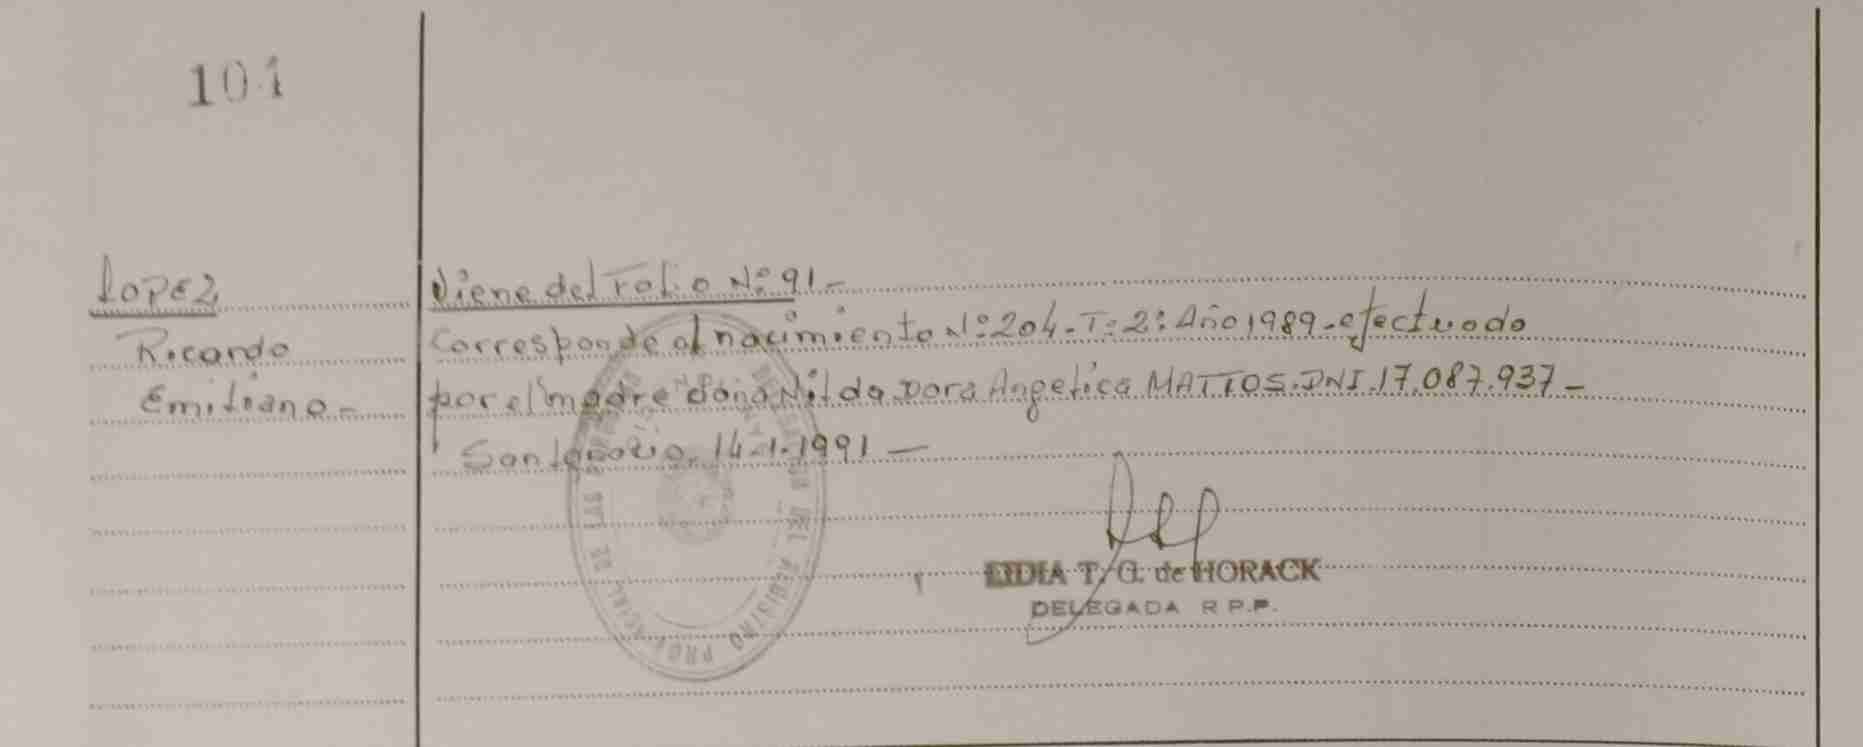 101
Lopez
Ricardo
Emiliano.-
Viene del Folio Nº 91-
Corresponde al nacimiento Nº 204-Tº 2º Año 1989-efectuado
por el madre doña Nilda Dora Angelica MATTOS.DNI.17.087.937-
San Ignacio, 14-1-1991 -
LIDIA T. G. de HORACK
DELEGADA R.P.P.
DEL REGISTRO PROVINCIAL DE LAS